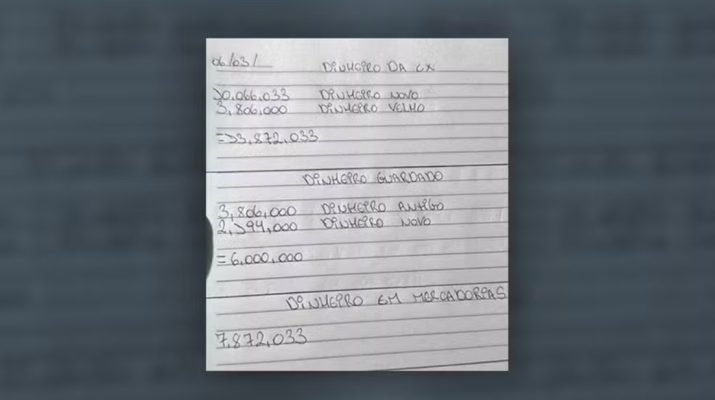 06/03/ DINHEIRO DA CX
10,066,033 DINHEIRO NOVO
3,806,000 DINHEIRO VELHO
=13,872,033
DINHEIRO GUARDADO
3,806,000 DINHEIRO ANTIGO
2,194,000 DINHEIRO NOVO
=6,000,000
DINHEIRO EM MERCADORIAS
7,872,033